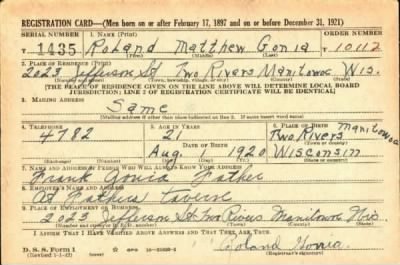 REGISTRATION CARD—(Men born on or after February 17, 1897 and on or before December 31, 1921)
SERIAL NUMBER 1. NAME (Print) ORDER NUMBER
T 1435 Roland Matthew Gonia 10112
(First) (Middle) (Last)
2. PLACE OF RESIDENCE (Print)
2023 Jefferson St Two Rivers Manitowoc Wis.
(Number and street) (Town, township, village, or city) (County) (State)
[THE PLACE OF RESIDENCE GIVEN ON THE LINE ABOVE WILL DETERMINE LOCAL BOARD
JURISDICTION; LINE 2 OF REGISTRATION CERTIFICATE WILL BE IDENTICAL]
3. MAILING ADDRESS
Same
(Mailing address if other than place indicated on line 2. If same insert word same)
4. TELEPHONE 5. AGE IN YEARS 6. PLACE OF BIRTH
4782 Two Rivers Manitowoc
DATE OF BIRTH (Town or county)
Aug 1 1920 Wisconsin
(Exchange) (Number) (Mo.) (Day) (Yr.) (State or country)
7. NAME AND ADDRESS OF PERSON WHO WILL ALWAYS KNOW YOUR ADDRESS
Frank Gonia Father
8. EMPLOYER'S NAME AND ADDRESS
At Fathers Tavern
9. PLACE OF EMPLOYMENT OR BUSINESS
2023 Jefferson St Two Rivers Manitowoc Wis.
(Number and street or R. F. D. number) (Town) (County) (State)
I AFFIRM THAT I HAVE VERIFIED ABOVE ANSWERS AND THAT THEY ARE TRUE.
D. S. S. Form 1
(Revised 1-1-42) (over) Roland Gonia
(Registrant's signature)